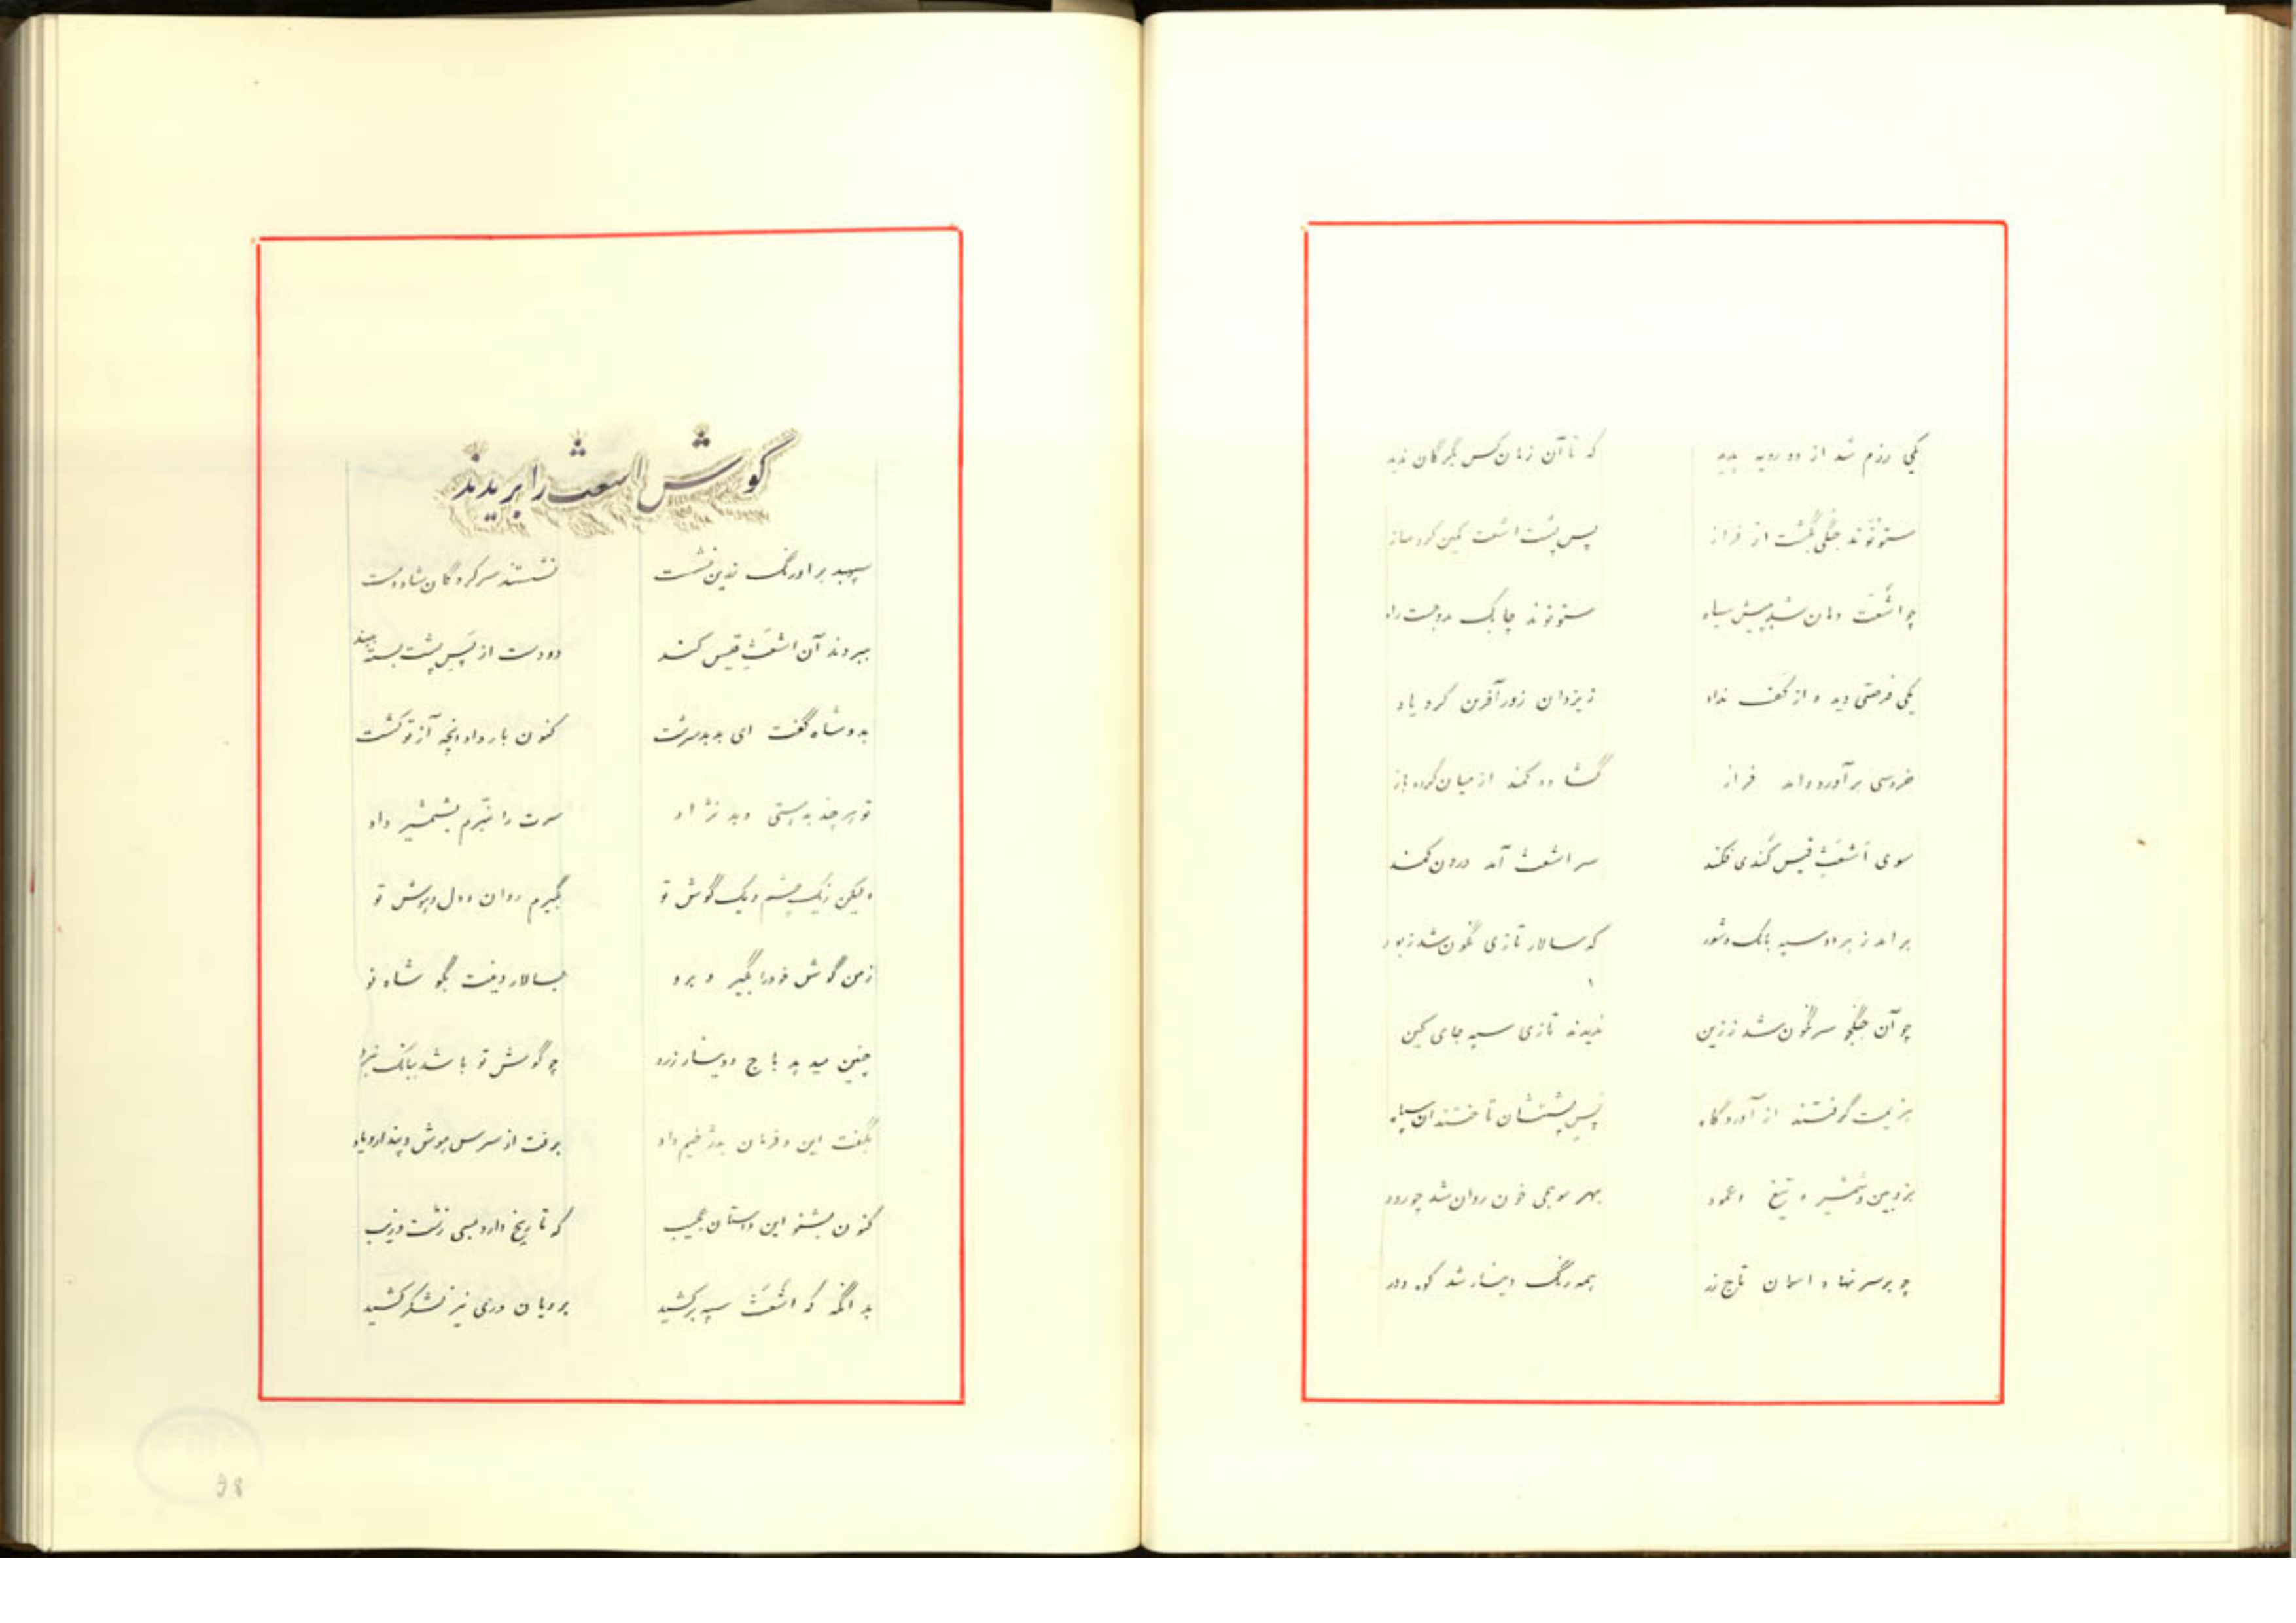 یکی رزم شد از دو رویه پدید که تا آن زمان کس بگرگان ندید
ستوتوند جنگی بگشت از فراز پس پشت اشعث کمین کرد ساز
چو اشعَث دمان شد به پیش سپاه ستوتوند چابک بدو جست راه
یکی فرصتی دید و از کف نداد ز یزدان زورآفرین کرد یاد
خروسی برآورد و آمد فراز گشادو کمند از میان کرده باز
سوی اَشعَث قیس کندی فکند سر اشعث آمد درون کمند
بر آمد ز هر دو سپه بانگ و شور که سالار تازی نگون شد ز بور
چو آن جنگجو سرنگون شد ز زین ندیدند تازی سپه جای کین
هزیمت گرفتند از آوردگاه پَس پشتشان تاختند آن سپاه
بزوبین و شمشیر و تیغ و عمود بهر سوهمی خون روان شد چو رود
چو بر سر نهاد آسمان تاج زر همه رنگ دینار شد کوه و در
گوش اشعث را بریدند
سپهبد بر اورنگ زرین نشست نشستند سرکردگان شاد و مست
ببردند آن اشعَث قیس کند دو دست از پَس پشت بسته ببند
بدو شاه گفت ای بد بدسرشت کنون بار داد آنچه آز تو کشت
تو هر چند پستی و بد نژاد سرت را نبرم بشمشیر داد
ولیکن ز یک چشم و یک گوش تو بگیرم روان و دل و هوش تو
ز من گوش خود را بگیر و برو بسالار دینت بگو شاه نو
چنین میدهد باج و دینار زرد چو گوش تو باشد ببانگ نبرد
بگفت این و فرمان بدژخیم داد برفت از سرس هوش و پندار و یاد
کنون بشنو این داستان عجیب که تاریخ دارد بسی زشت و زیب
بدانگه که اشعَث سپه برکشید برویان دری نیز لشکر کشید
98